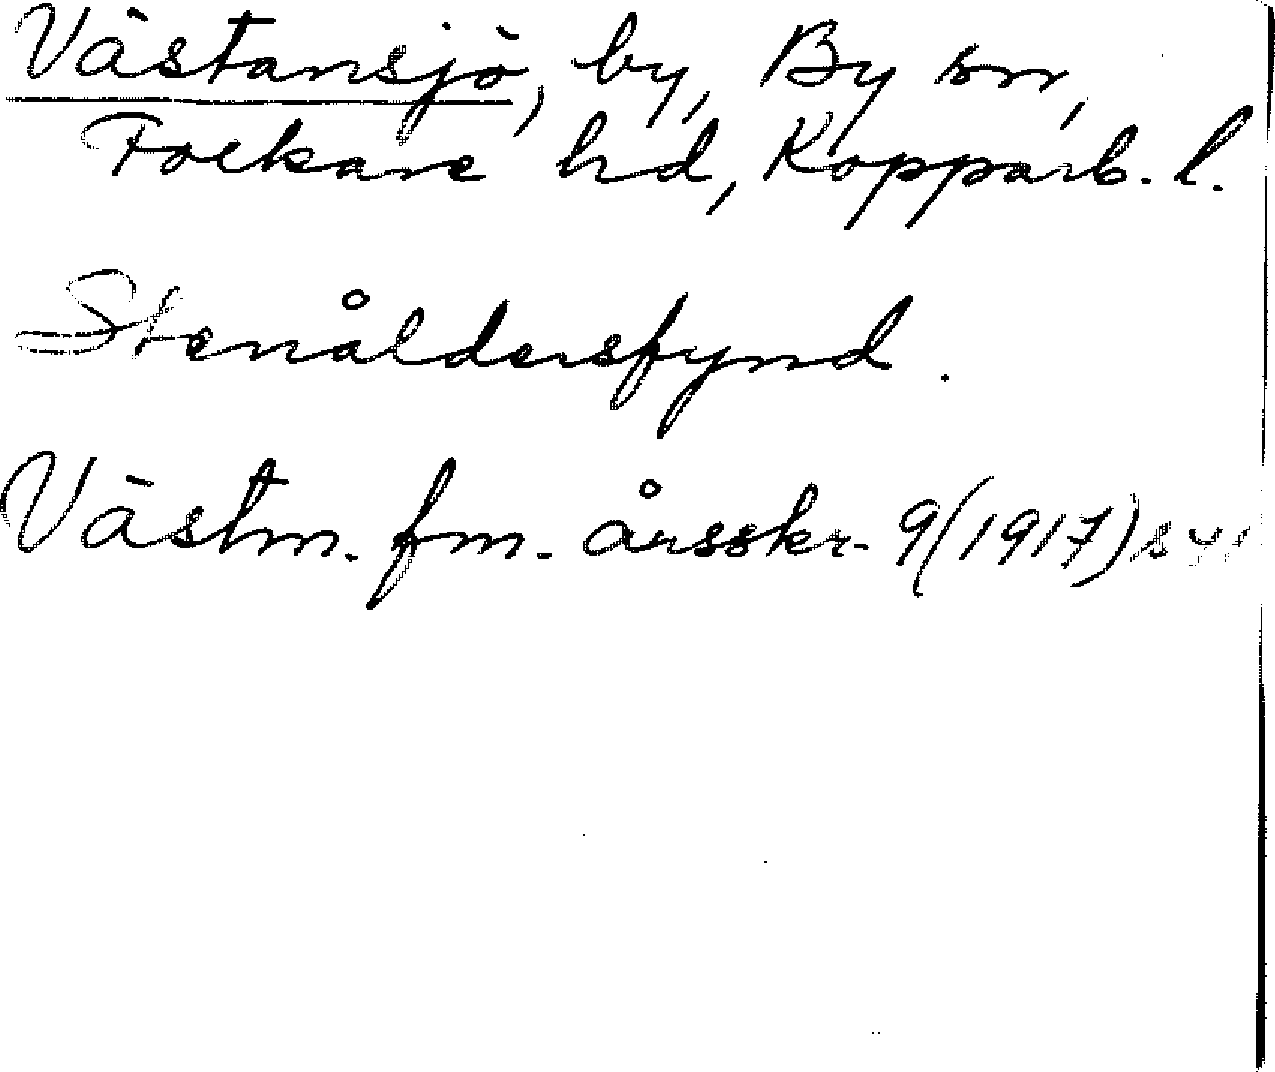 Västansjö, by, By sn,
Folkare hd, Kopparb. l.
Stenåldersfynd.
Västm. fm. årsskr. 9(1917) s